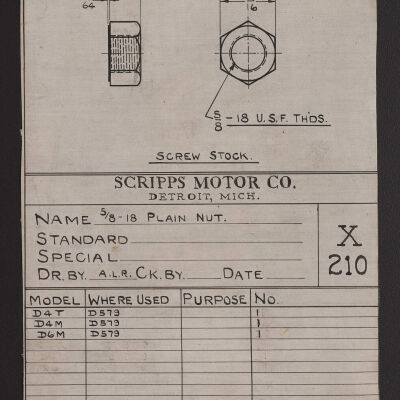 64
16
5/8 - 18 U.S.F. TH'DS.
SCREW STOCK.
SCRIPPS MOTOR CO.
DETROIT, MICH.
NAME 5/8-18 PLAIN NUT.
STANDARD
SPECIAL
DR. BY. A.L.R. CK. BY. DATE
X
210
MODEL WHERE USED PURPOSE NO.
D4T D579 1
D4M D579 1
D6M D579 1